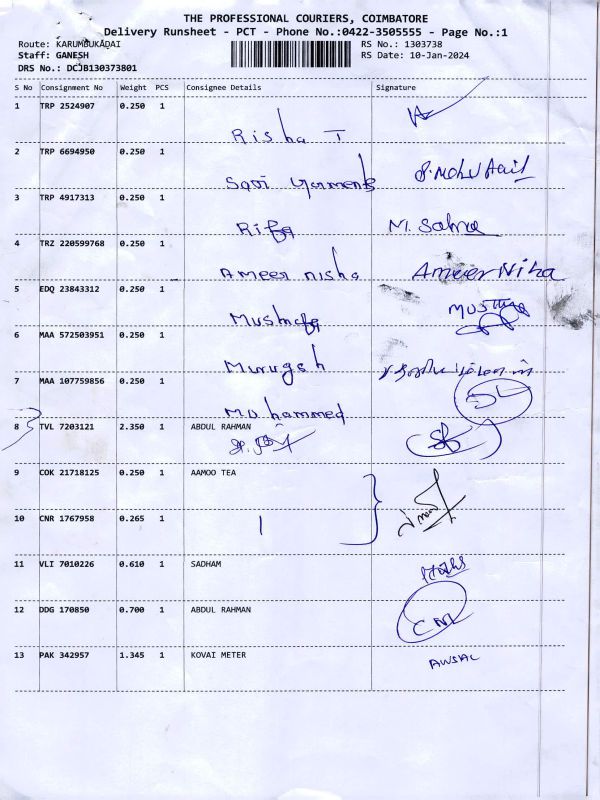 THE PROFESSIONAL COURIERS, COIMBATORE
Delivery Runsheet - PCT - Phone No.:0422-3505555 - Page No.:1
Route: KARUMBUKADAI RS No.: 1303738
Staff: GANESH RS Date: 10-Jan-2024
DRS No.: DCJB130373801
S No Consignment No Weight PCS Consignee Details Signature
1 TRP 2524907 0.250 1
Risha T
2 TRP 6694950 0.250 1
3 TRP 4917313 0.250 1
M. Sabna
4 TRZ 220599768 0.250 1
Ameer nisha Ameer Nisha
5 EDQ 23843312 0.250 1
Mustnafa
6 MAA 572503951 0.250 1
Murugesh
7 MAA 107759856 0.250 1
Mohammed
8 TVL 7203121 2.350 1 ABDUL RAHMAN
9 COK 21718125 0.250 1 AAMOO TEA
10 CNR 1767958 0.265 1
11 VLI 7010226 0.610 1 SADHAM
12 DDG 170850 0.700 1 ABDUL RAHMAN
13 PAK 342957 1.345 1 KOVAI METER
AWSAL